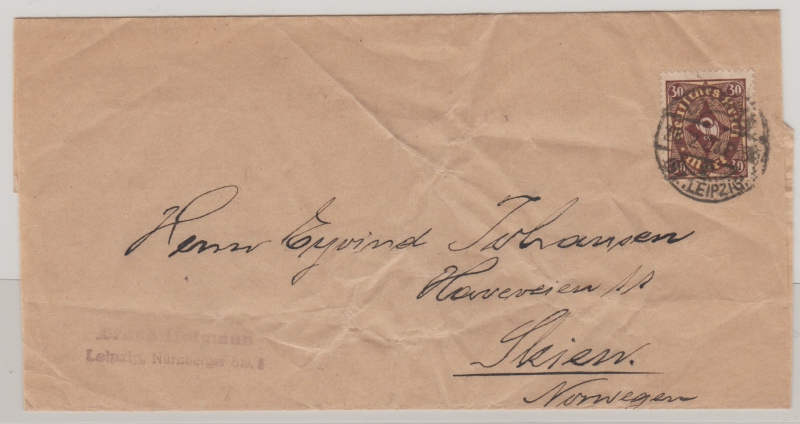 30 30
Deutsches Reich
30
LEIPZIG
Herrn Eyvind Johansen
Haveveien 11
Skien.
Norwegen
Hofmann
Leipzig, Nürnberger Str. 8